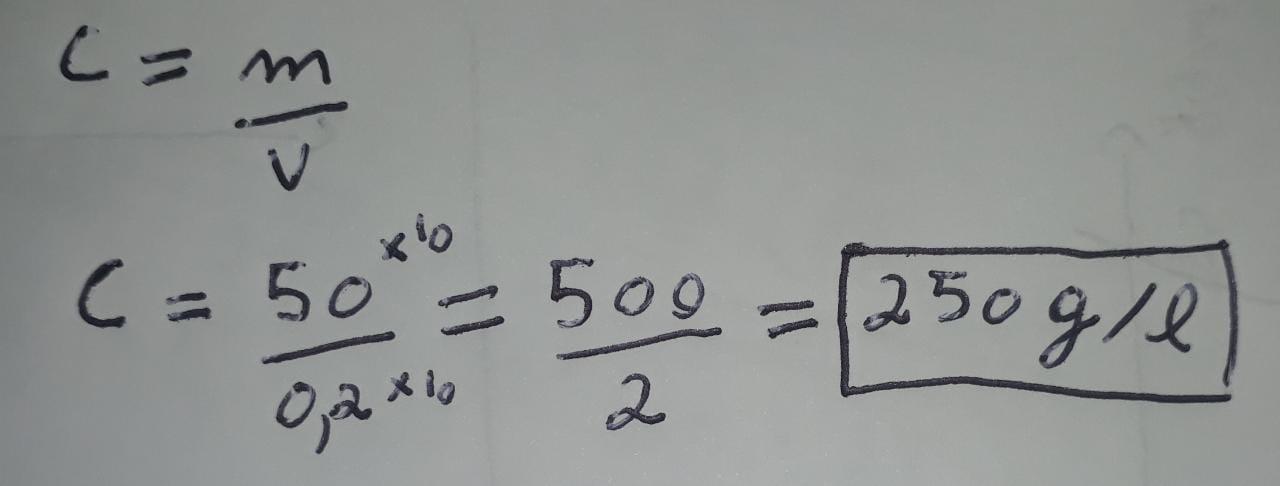 C = m/v
C = 50 x10 / 0,2 x10 = 500/2 = 250 g/l